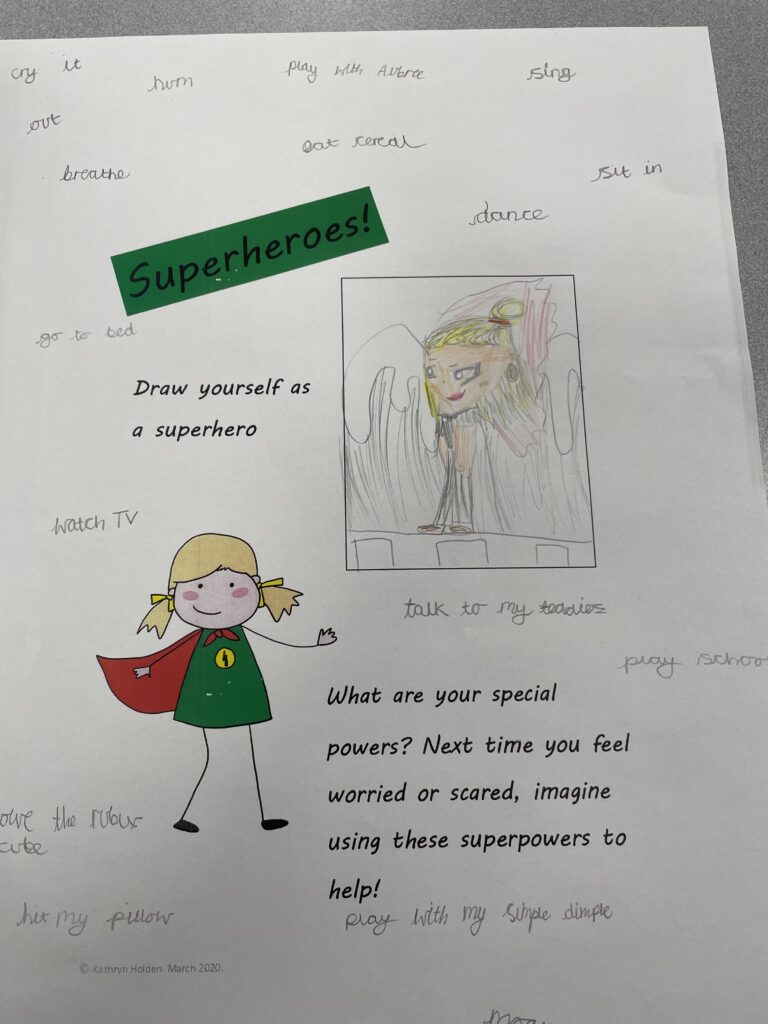 cry it
out
hum
play with Aubree
sing
eat cereal
breathe
sit in
dance
Superheroes!
go to bed
Draw yourself as
a superhero
watch TV
talk to my teddies
play schoo
What are your special
powers? Next time you feel
worried or scared, imagine
using these superpowers to
help!
olve the rubix
cube
hit my pillow
play with my simple dimple
© Kathryn Holden. March 2020.